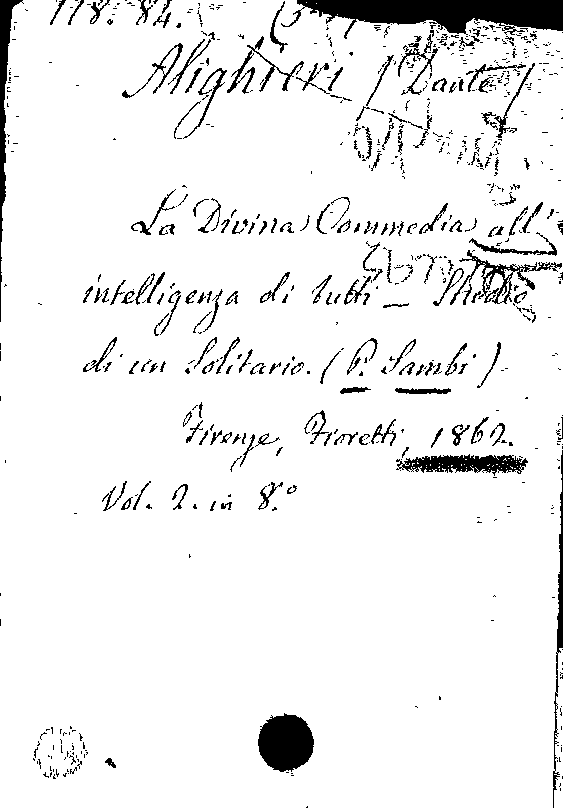 118. 84.
Alighieri (Dante)
La Divina Commedia all'
intelligenza di tutti — Studio
di un Solitario. (P. Sambi)
Firenze, Fioretti, 1862.
Vol. 2. in 8.°